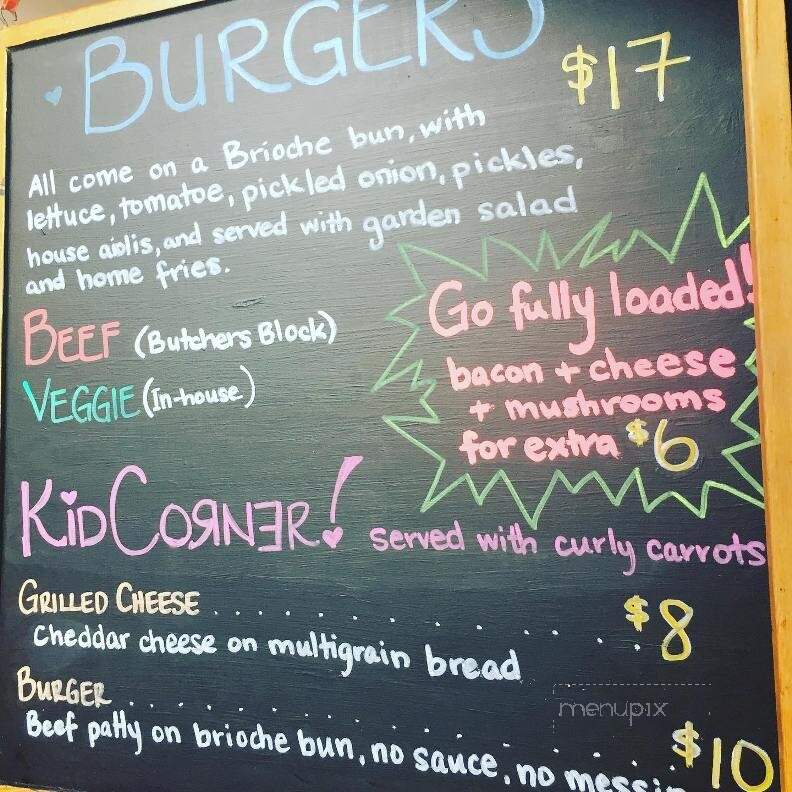 BURGERS
$17
All come on a Brioche bun, with
lettuce, tomatoe, pickled onion, pickles,
house aiolis, and served with garden salad
and home fries.
BEEF (Butchers Block)
VEGGIE (In-house)
Go fully loaded!
bacon + cheese
+ mushrooms
for extra $6
KiD CORNER! served with curly carrots
GRILLED CHEESE . . . . . . . . . . . $8
Cheddar cheese on multigrain bread
BURGER . . . . . . . . . . . . . $10
Beef patty on brioche bun, no sauce, no messin
menupix